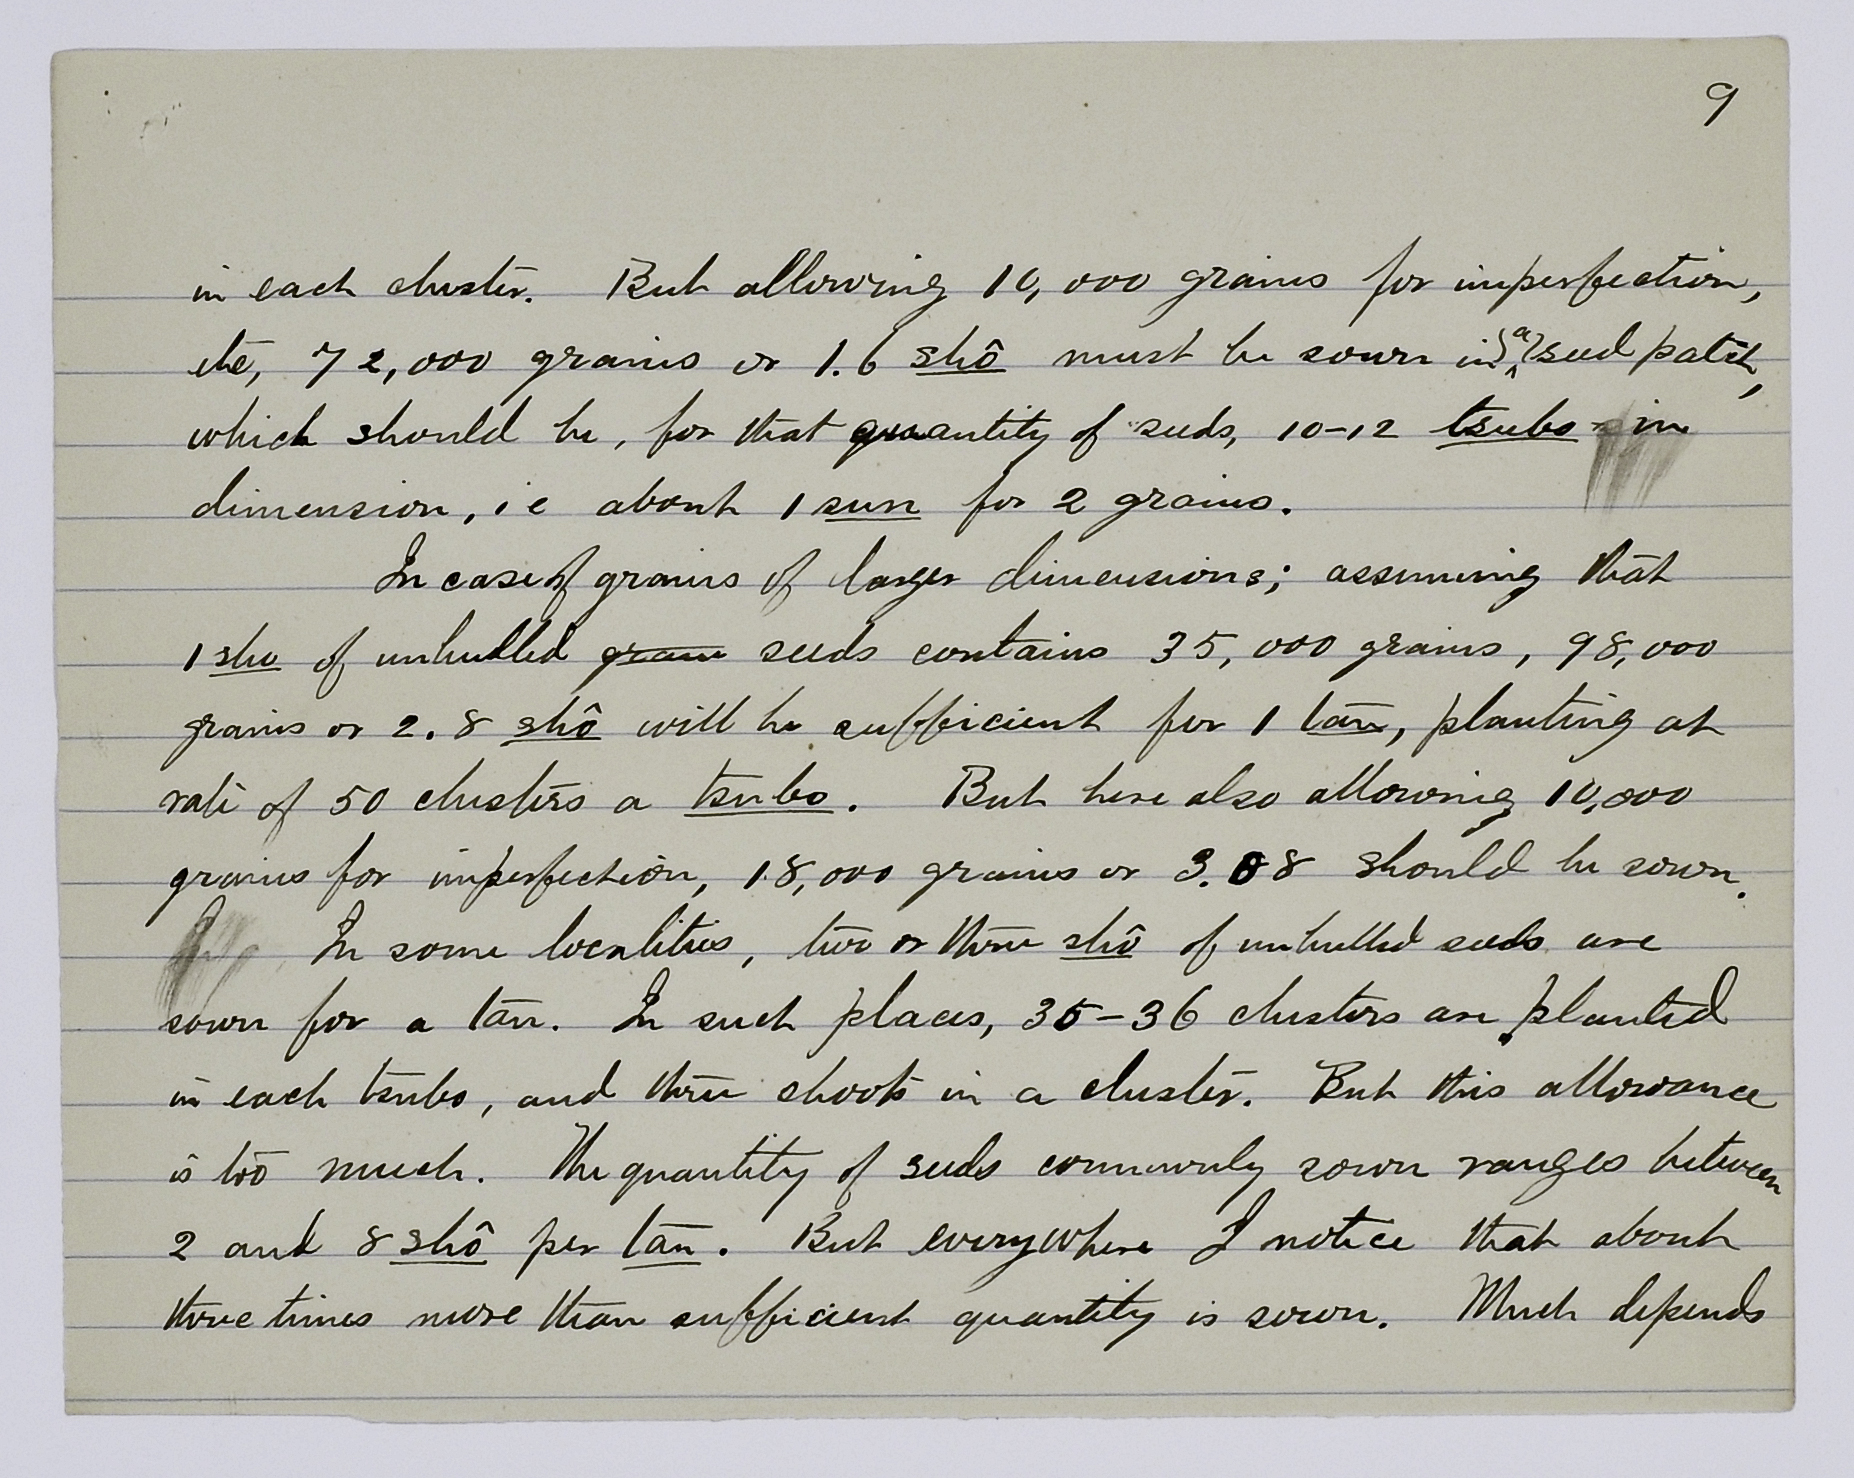 9
in each cluster. But allowing 10,000 grains for imperfection,
etc, 72,000 grains or 1.6 shô must be sown in a seed patch,
which should be, for that quantity of seeds, 10-12 tsubo in
dimension, i e about 1 sun for 2 grains.
In case of grains of larger dimensions; assuming that
1 sho of unhulled grain seeds contains 35,000 grains, 98,000
grains or 2.8 shô will be sufficient for 1 tan, planting at
rate of 50 clusters a tsubo. But here also allowing 10,000
grains for imperfection, 18,000 grains or 3.08 should be sown.
In some localities, two or three shô of unhulled seeds are
sown for a tan. In such places, 35-36 clusters are planted
in each tsubo, and three shoots in a cluster. But this allowance
is too much. The quantity of seeds commonly sown ranges between
2 and 8 shô per tan. But everywhere I notice that about
three times more than sufficient quantity is sown. Much depends